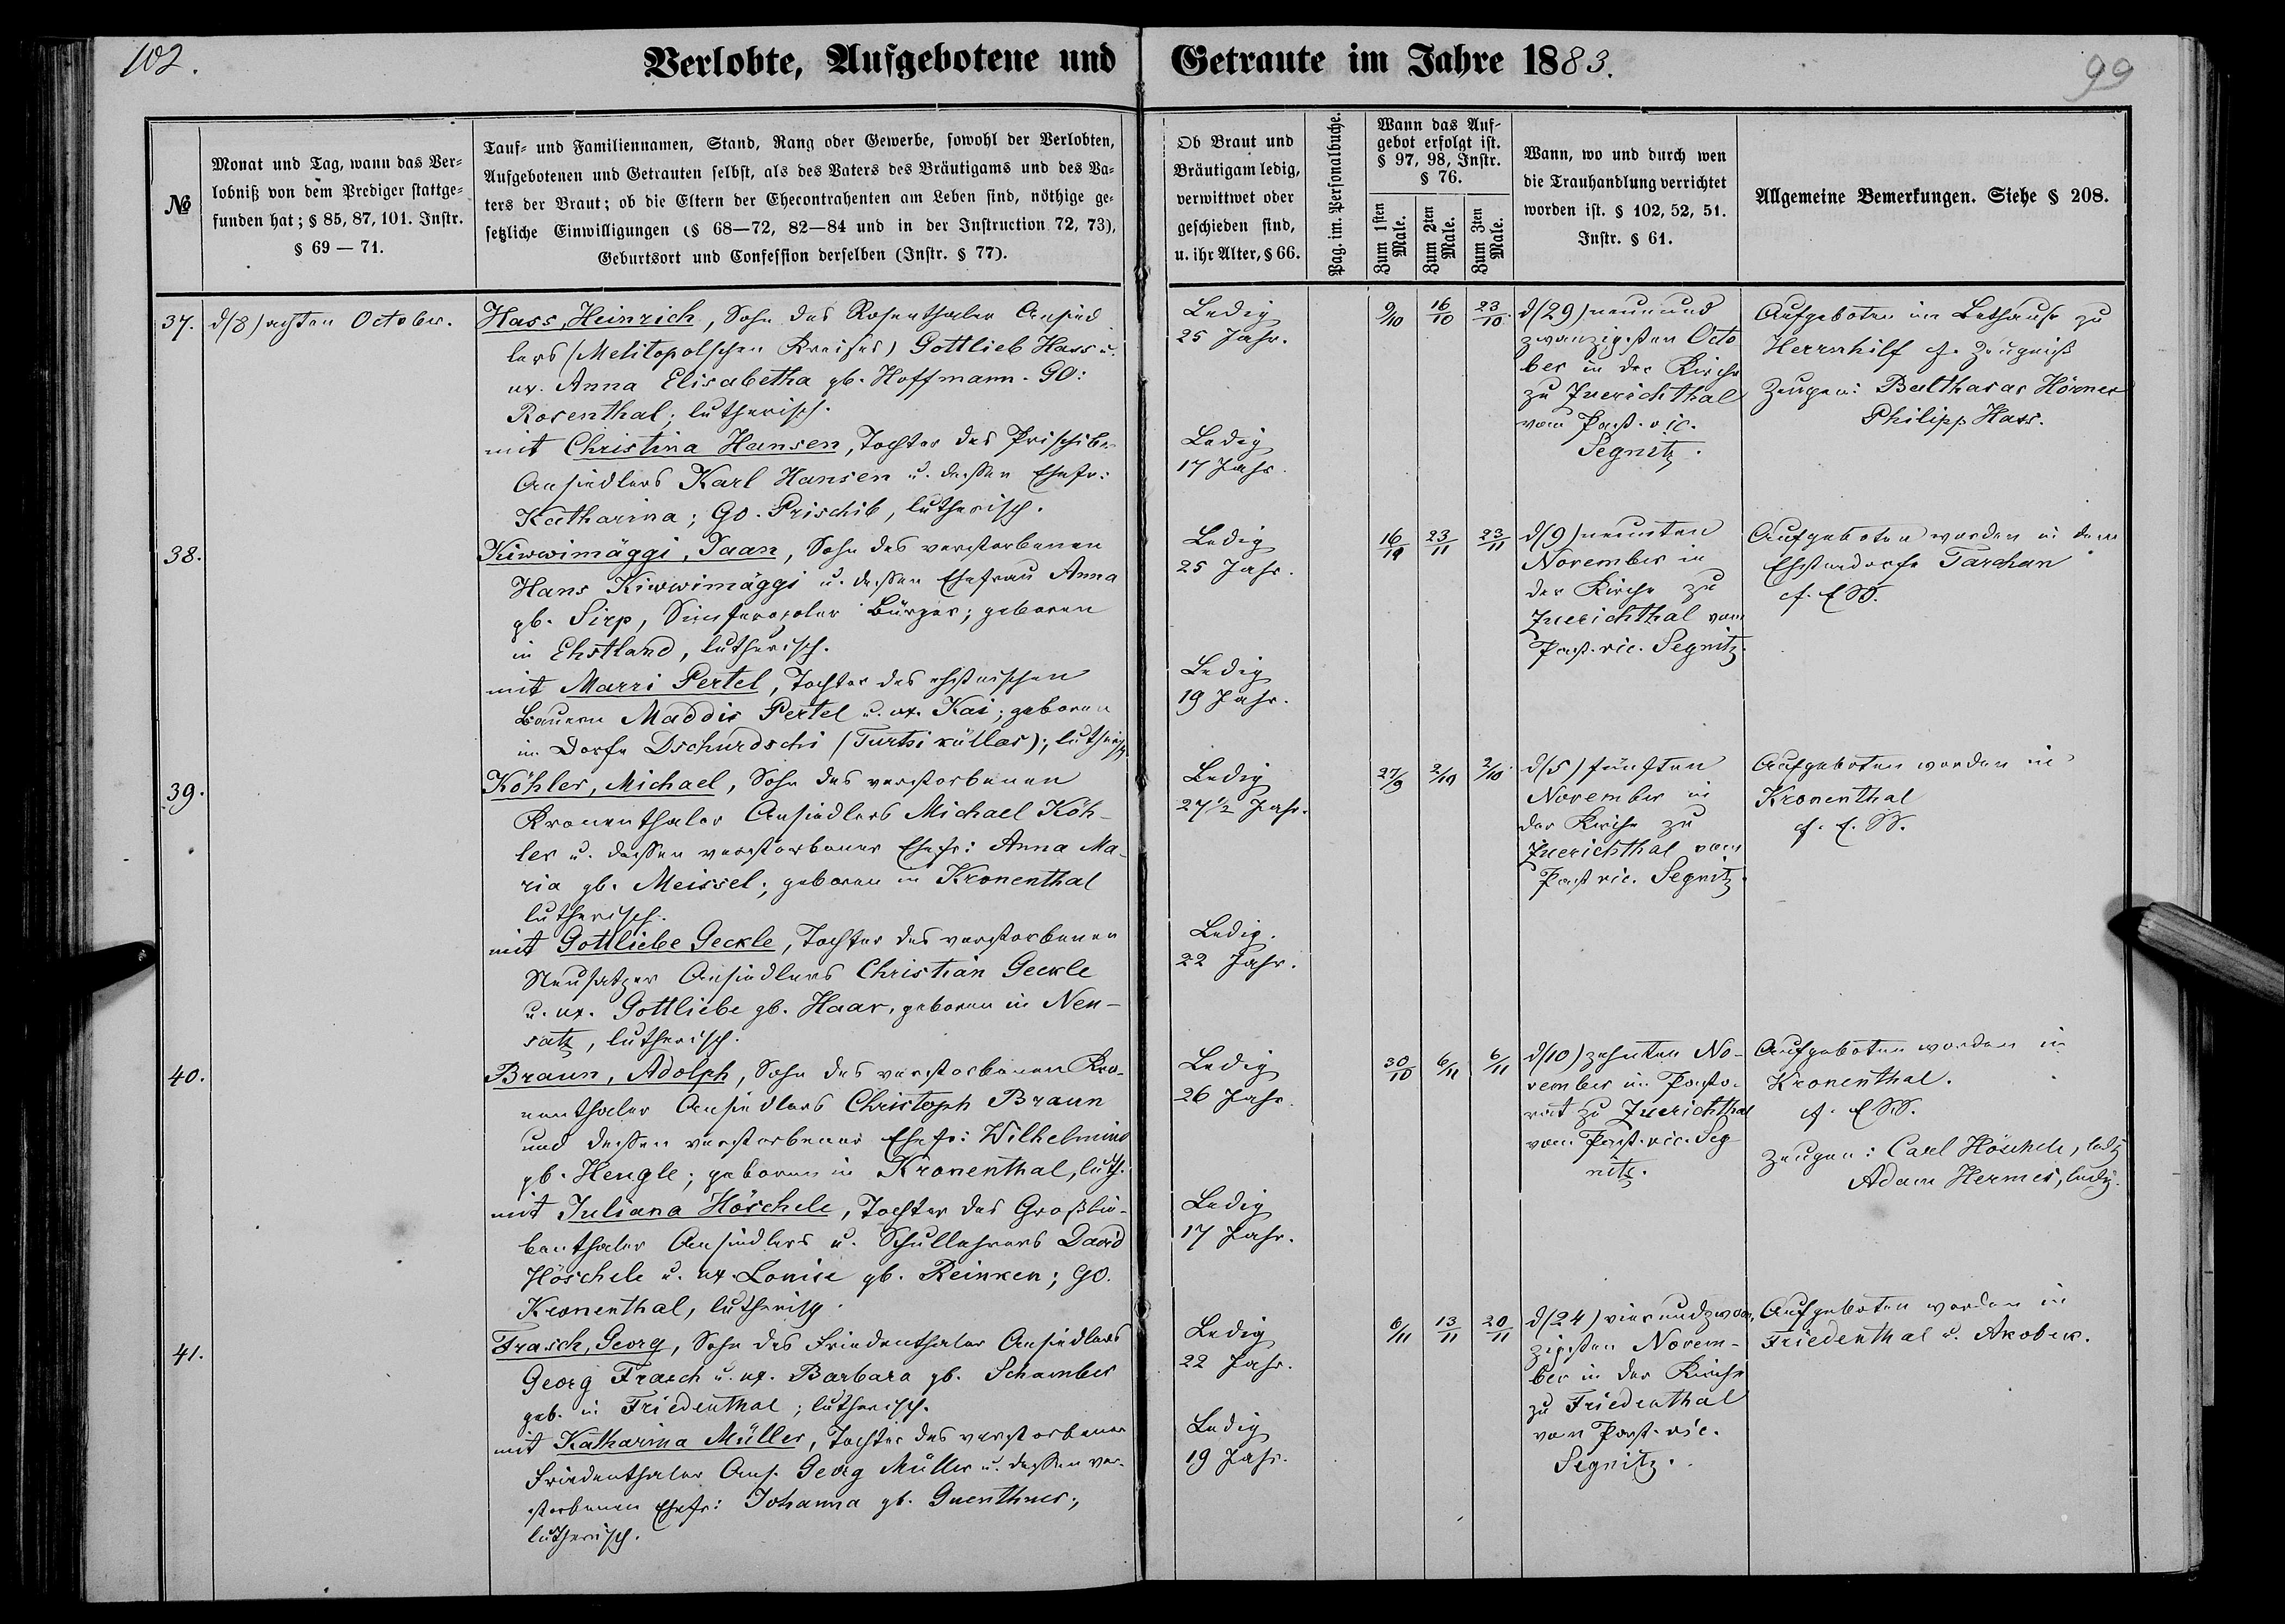 102.
99
Verlobte, Aufgebotene und Getraute im Jahre 1883.
№
Monat und Tag, wann das Ver-
lobniß von dem Prediger stattge-
funden hat; § 85, 87, 101. Instr.
§ 69 — 71.
Tauf- und Familiennamen, Stand, Rang oder Gewerbe, sowohl der Verlobten,
Aufgebotenen und Getrauten selbst, als des Vaters des Bräutigams und des Va-
ters der Braut; ob die Eltern der Ehecontrahenten am Leben sind, nöthige ge-
setzliche Einwilligungen (§ 68—72, 82—84 und in der Instruction 72, 73),
Geburtsort und Confession derselben (Instr. § 77).
Ob Braut und
Bräutigam ledig,
verwittwet oder
geschieden sind,
u. ihr Alter, § 66.
Pag. im. Personalbuche.
Wann das Auf-
gebot erfolgt ist.
§ 97, 98, Instr.
§ 76.
Zum 1sten
Male.
Zum 2ten
Male.
Zum 3ten
Male.
Wann, wo und durch wen
die Trauhandlung verrichtet
worden ist. § 102, 52, 51.
Instr. § 61.
Allgemeine Bemerkungen. Siehe § 208.
37.
d/8) achten October.
Hass, Heinrich, Sohn des Rosenthaler Ansied
lers (Melitopolschen Kreises) Gottlieb Hass u.
ux. Anna Elisabetha gb. Hoffmann. GO:
Rosenthal; lutherisch.
mit Christina Hansen, Tochter des Prischiber
Ansiedlers Karl Hansen u. dessen Ehefr:
Katharina; GO. Prischib, lutherisch.
Ledig
25 Jahr.
Ledig
17 Jahr.
9/10
16/10
23/10
d/29) neunund
zwanzigsten Octo
ber in der Kirche
zu Zuerichthal
vom Past. vic.
Segnitz.
Aufgeboten im Bethause zu
Herrnhilf cf. Zeugniß
Zeugen: Balthasar Hörner
Philipp Hass.
38.
Kiwwimäggi, Jaan, Sohn des verstorbenen
Hans Kiwwimäggi u. dessen Ehefrau Anna
gb. Sirp, Simferopoler Bürger; geboren
in Ehstland, lutherisch.
mit Marri Pertel, Tochter des ehstnischen
Bauern Maddis Pertel u. ux. Kai; geboren
im Dorfe Dschurdschi (Turtsi küllas); lutherisch.
Ledig
25 Jahr.
Ledig
19 Jahr.
16/19
23/11
23/11
d/9) neunten
November in
der Kirche zu
Zuerichthal vom
Past. vic. Segnitz.
Aufgeboten worden in dem
Ehstendorfe Tarchan
39.
Köhler, Michael, Sohn des verstorbenen
Kronenthaler Ansiedlers Michael Köh-
ler u. dessen verstorbener Ehefr: Anna Ma-
ria gb. Meissel; geboren in Kronenthal
lutherisch.
mit Gottliebe Geckle, Tochter des verstorbenen
Neusatzer Ansiedlers Christian Geckle
u. ux. Gottliebe gb. Haar, geboren in Neu-
satz, lutherisch.
Ledig
27 1/2 Jahr.
Ledig.
22 Jahr.
27/9
2/10
2/10
d/5) fünften
November in
der Kirche zu
Zuerichthal vom
Past vic. Segnitz.
Aufgeboten worden in
Kronenthal
40.
Braun, Adolph, Sohn des verstorbenen Kro-
nenthaler Ansiedlers Christoph Braun
und dessen verstorbener Ehefr: Wilhelmine
gb. Hengle; geboren in Kronenthal, luth.
mit Juliana Höschele, Tochter des Großlie-
benthaler Ansiedlers u. Schullehrers David
Höschele u. ux. Louise gb. Reinken; GO.
Kronenthal, lutherisch.
Ledig
26 Jahr.
Ledig
17 Jahr.
30/10
6/11
6/11
d/10) zehnten No-
vember im Pasto-
rat zu Zuerichthal
vom Past. vic. Seg
nitz.
Aufgeboten worden in
Kronenthal.
Zeugen: Carl Höschele, ledig
Adam Hermes, ledig.
41.
Frasch, Georg, Sohn des Friedenthaler Ansiedlers
Georg Frasch u. ux. Barbara gb. Schamber
geb. in Friedenthal; lutherisch.
mit Katharina Müller, Tochter des verstorbenen
Friedenthaler Ans. Georg Müller u. dessen ver-
storbenen Ehefr: Johanna gb. Guenthner;
lutherisch.
Ledig
22 Jahr.
Ledig
19 Jahr.
6/11
13/11
20/11
d/24) vierundzwan-
zigsten Novem-
ber in der Kirche
zu Friedenthal
von Past. vic.
Segnitz.
Aufgeboten worden in
Friedenthal u. Akobek.